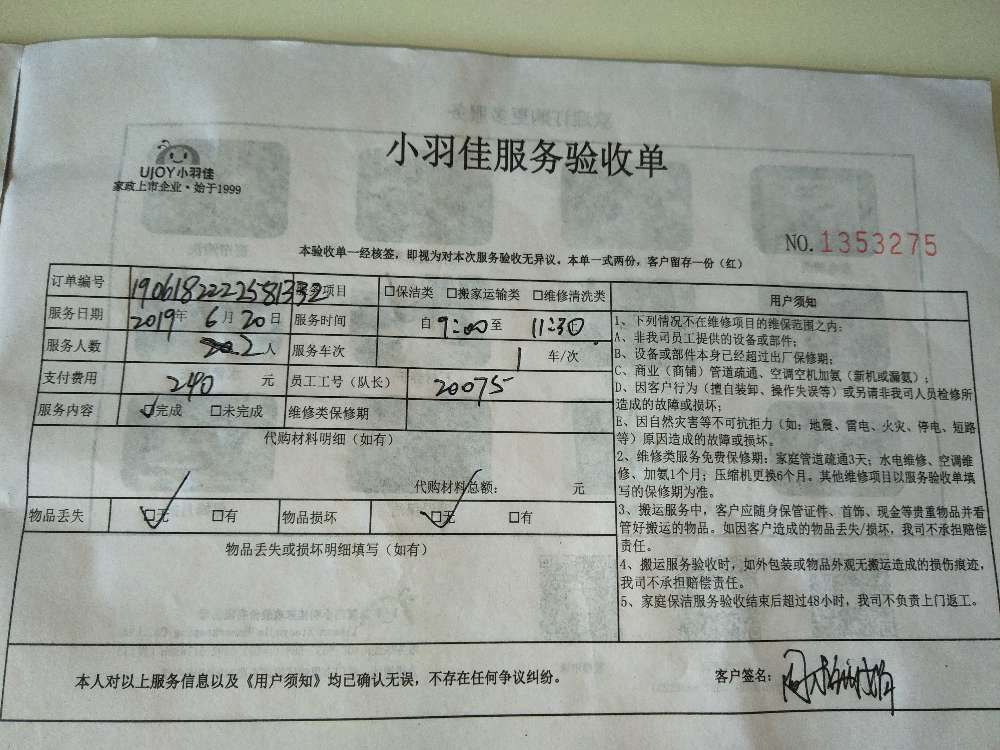 小羽佳服务验收单
UJOY小羽佳
家政上市企业·始于1999
NO.1353275
本验收单一经核签，即视为对本次服务验收无异议。本单一式两份，客户留存一份（红）
订单编号 190618222581332 服务项目 □保洁类 □搬家运输类 □维修清洗类
服务日期 2019年6月20日 服务时间 自9:00至11:30
服务人数 2人 服务车次 1车/次
支付费用 240元 员工工号（队长） 20075
服务内容 □完成 □未完成 维修类保修期
代购材料明细（如有）
代购材料总额： 元
物品丢失 □无 □有 物品损坏 □无 □有
物品丢失或损坏明细填写（如有）
用户须知
1、下列情况不在维修项目的维保范围之内：
A、非我司员工提供的设备或部件；
B、设备或部件本身已经超过出厂保修期；
C、商业（商铺）管道疏通、空调空机加氨（新机或漏氨）；
D、因客户行为（擅自装卸、操作失误等）或另请非我司人员检修所
造成的故障或损坏；
E、因自然灾害等不可抗拒力（如：地震、雷电、火灾、停电、短路
等）原因造成的故障或损坏。
2、维修类服务免费保修期：家庭管道疏通3天；水电维修、空调维
修、加氨1个月；压缩机更换6个月。其他维修项目以服务验收单填
写的保修期为准。
3、搬运服务中，客户应随身保管证件、首饰、现金等贵重物品并看
管好搬运的物品。如因客户造成的物品丢失/损坏，我司不承担赔偿
责任。
4、搬运服务验收时，如外包装或物品外观无搬运造成的损伤痕迹，
我司不承担赔偿责任。
5、家庭保洁服务验收结束后超过48小时，我司不负责上门返工。
本人对以上服务信息以及《用户须知》均已确认无误，不存在任何争议纠纷。
客户签名：